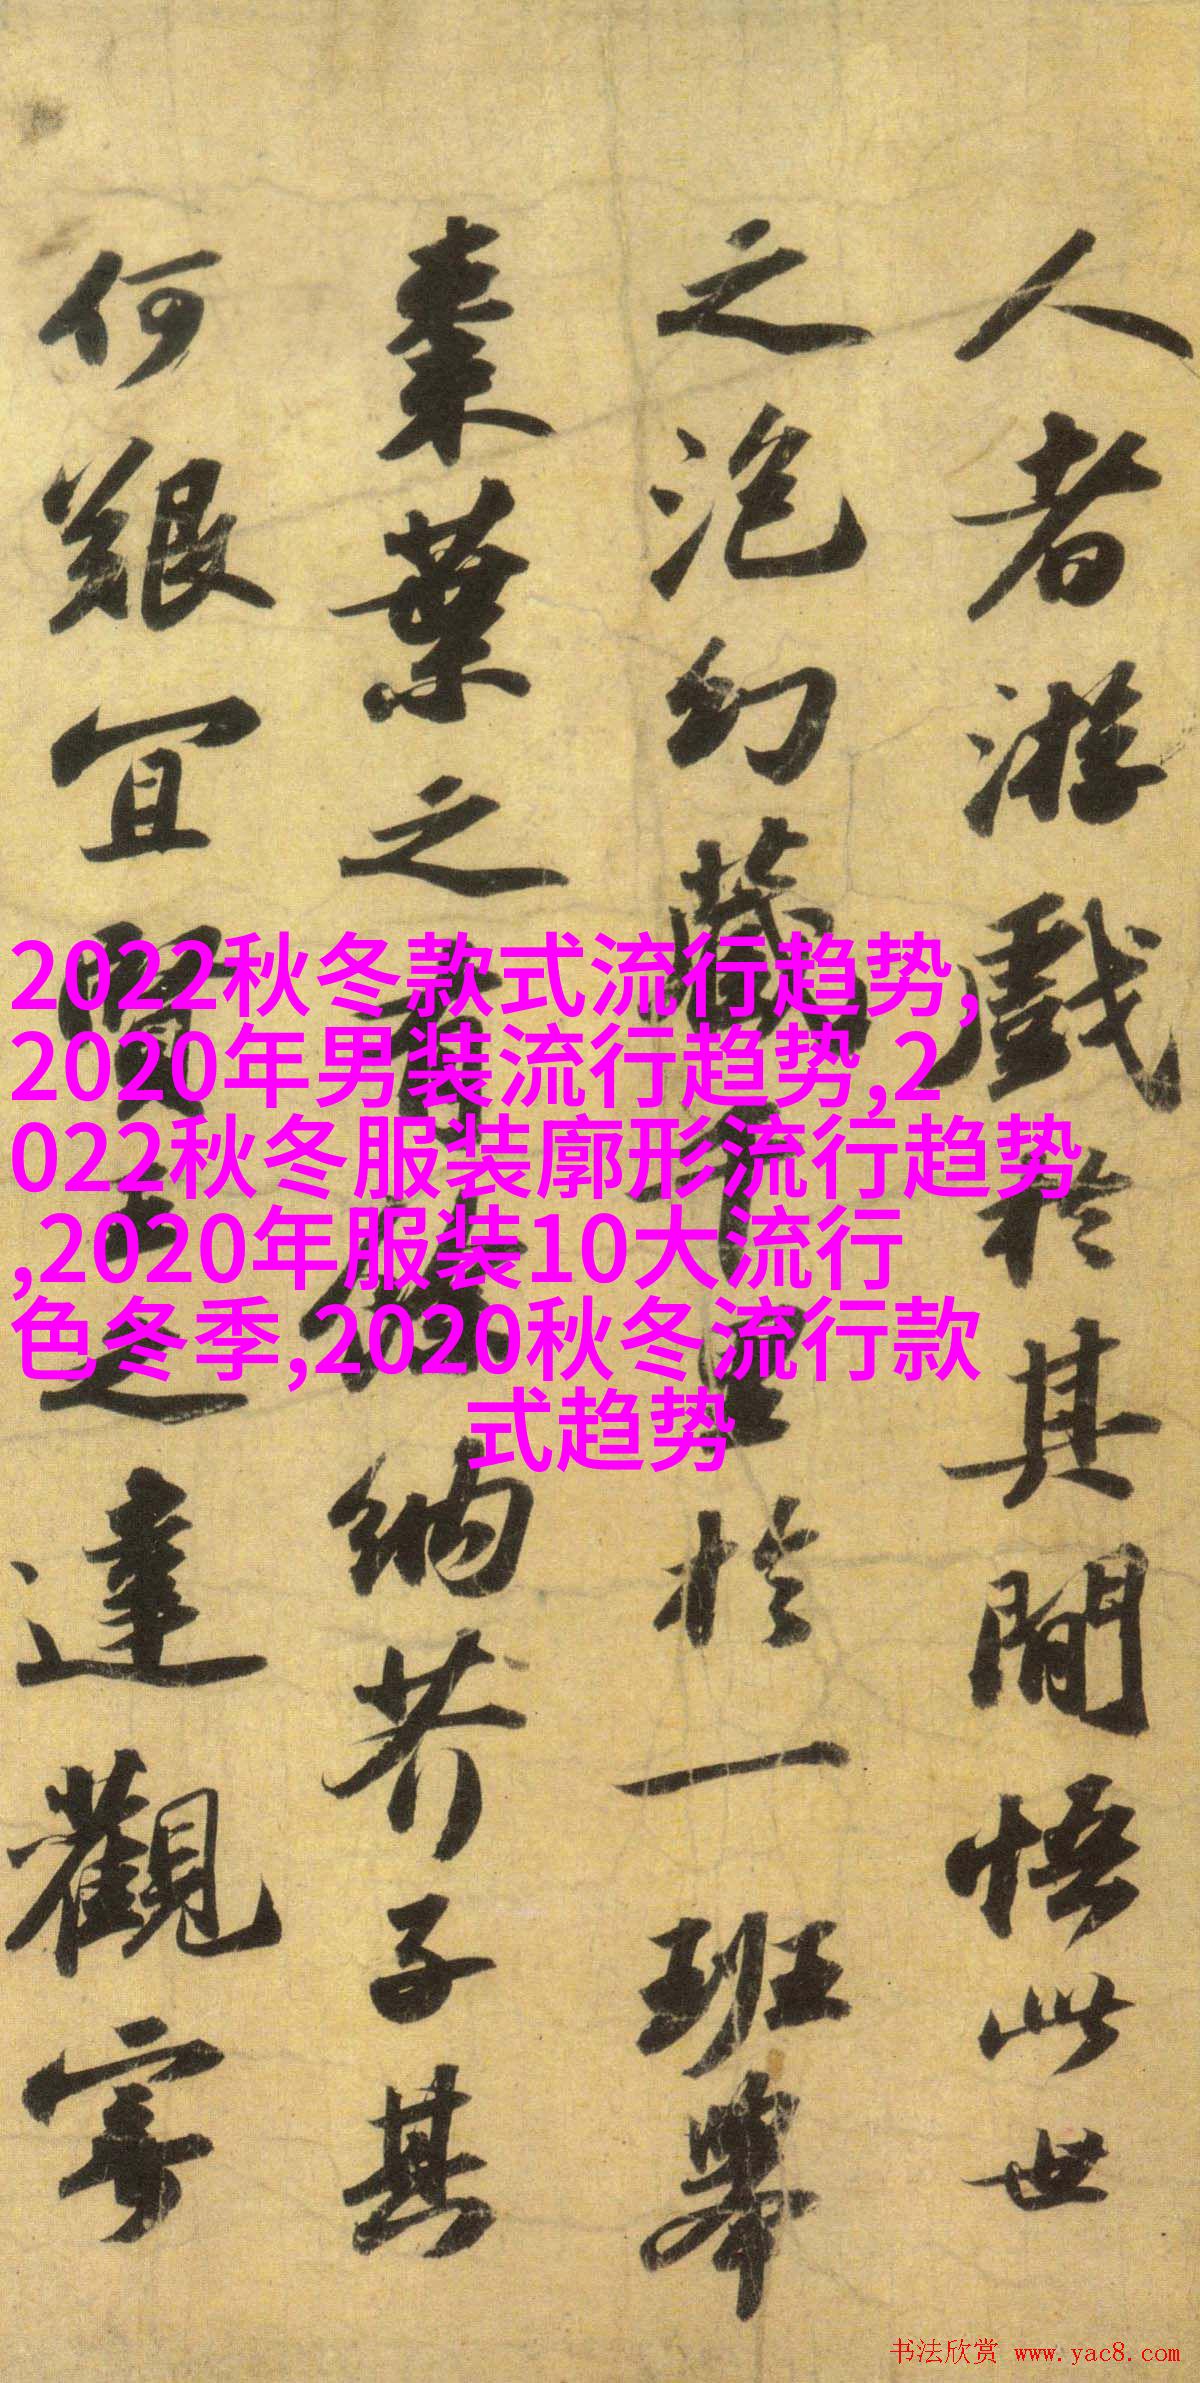 人者游戲於其閒悟此世
之泡幻藏千里於一班舉
棗葉之有餘納芥子其
何艱宜賢王之達觀寄
2022秋冬款式流行趋势,
2020年男装流行趋势,2
022秋冬服装廓形流行趋势
,2020年服装10大流行
色冬季,2020秋冬流行款
式趋势
书法欣赏 www.yac8.com